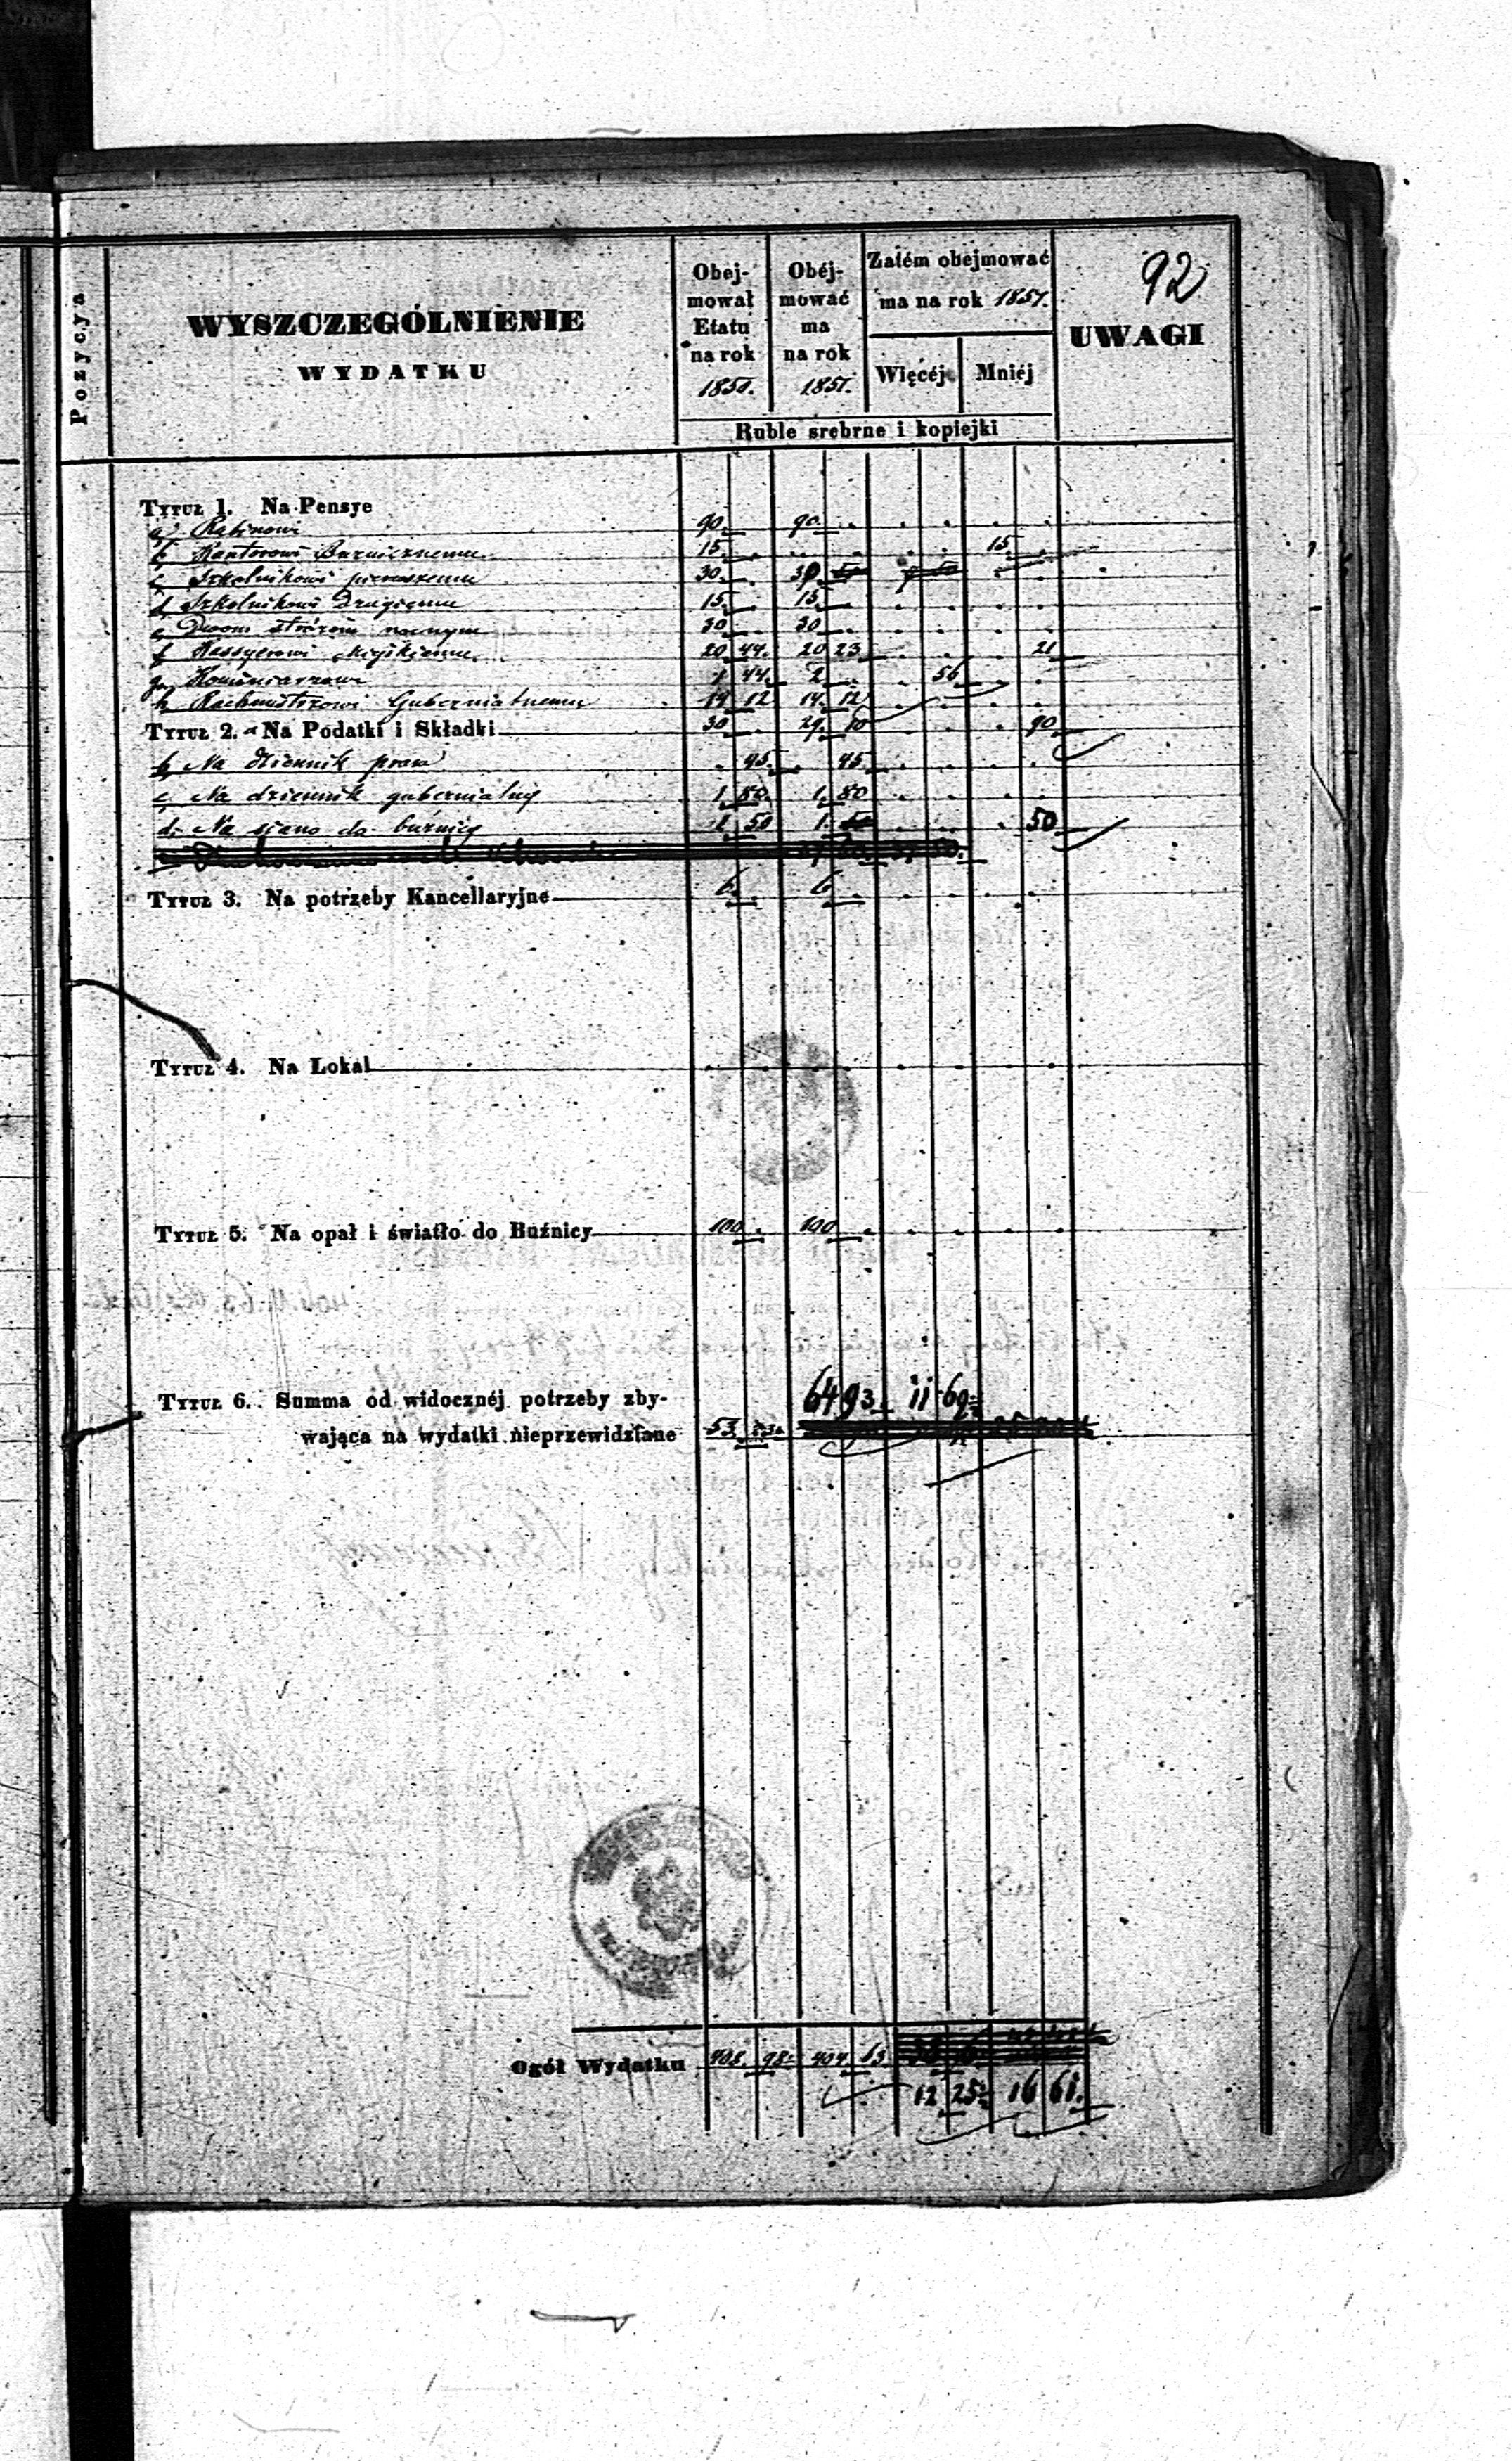 92
Pozycya
WYSZCZEGÓLNIENIE
WYDATKU
Obej-
mował
Etatu
na rok
1850.
Obéj-
mować
ma
na rok
1851.
Zatém obejmować
ma na rok 1851.
Więcéj
Mniéj
UWAGI
Ruble srebrne i kopiejki
TYTUŁ 1. Na Pensye
a, Rabinowi 90 90
b, Kantorowi Buznicznemu 15 15
c, Szkolnikowi pierwszemu 30 30
d, Szkolnikowi Drugiemu 15 15
e, Dwom stróżom nocnym 30 30
f, Kassyerowi Miejskiemu 20 44 20 23 21
g, Kominiarzowi 1 44 2 56
h, Rachmistrzowi Gubernialnemu 14 12 14 12
TYTUŁ 2. Na Podatki i Składki 30 29 10 90
b, Na dziennik praw 45 45
c, Na dziennik gubernialny 1 80 1 80
d, Na siano do buznicy 1 50 1 50
TYTUŁ 3. Na potrzeby Kancellaryjne 6 6
TYTUŁ 4. Na Lokal
TYTUŁ 5. Na opał i światło do Buźnicy 100 100
TYTUŁ 6. Summa od widocznéj potrzeby zby-
wająca na wydatki nieprzewidziane 53
64 93 11 69
Ogół Wydatku 408 98 404 63
12 25 16 61